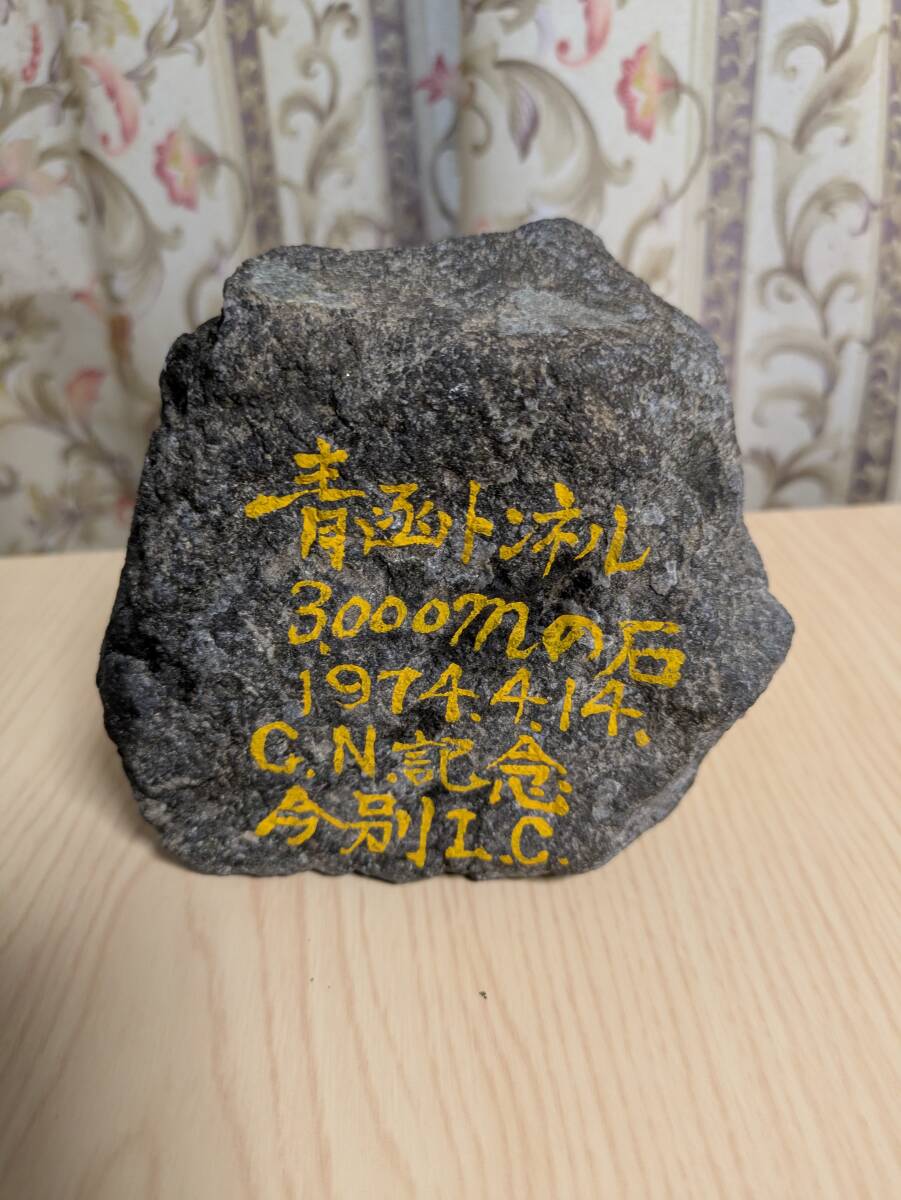 青函トンネル
3,000mの石
1974.4.14.
C.N.記念
今別I.C.